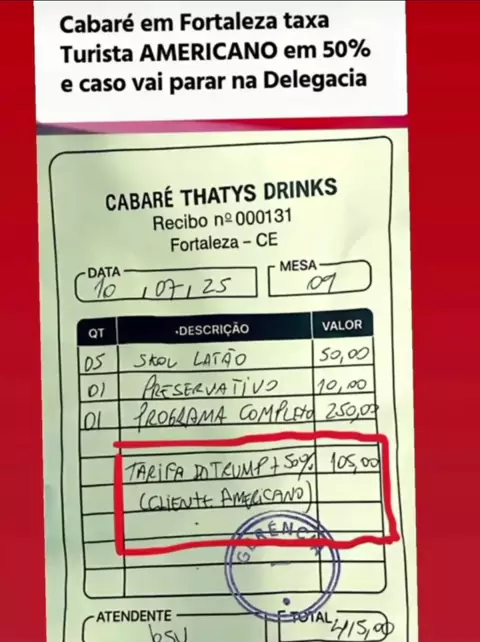 Cabaré em Fortaleza taxa
Turista AMERICANO em 50%
e caso vai parar na Delegacia
CABARÉ THATYS DRINKS
Recibo nº 000131
Fortaleza – CE
DATA 10, 07, 25 MESA 09
QT DESCRIÇÃO VALOR
05 SKOL LATÃO 50,00
01 PRESERVATIVO 10,00
01 PROGRAMA COMPLETO 250,00
TARIFA DO TRUMP + 50% 105,00
(CLIENTE AMERICANO)
GERÊNCIA
ATENDENTE TOTAL 415,00